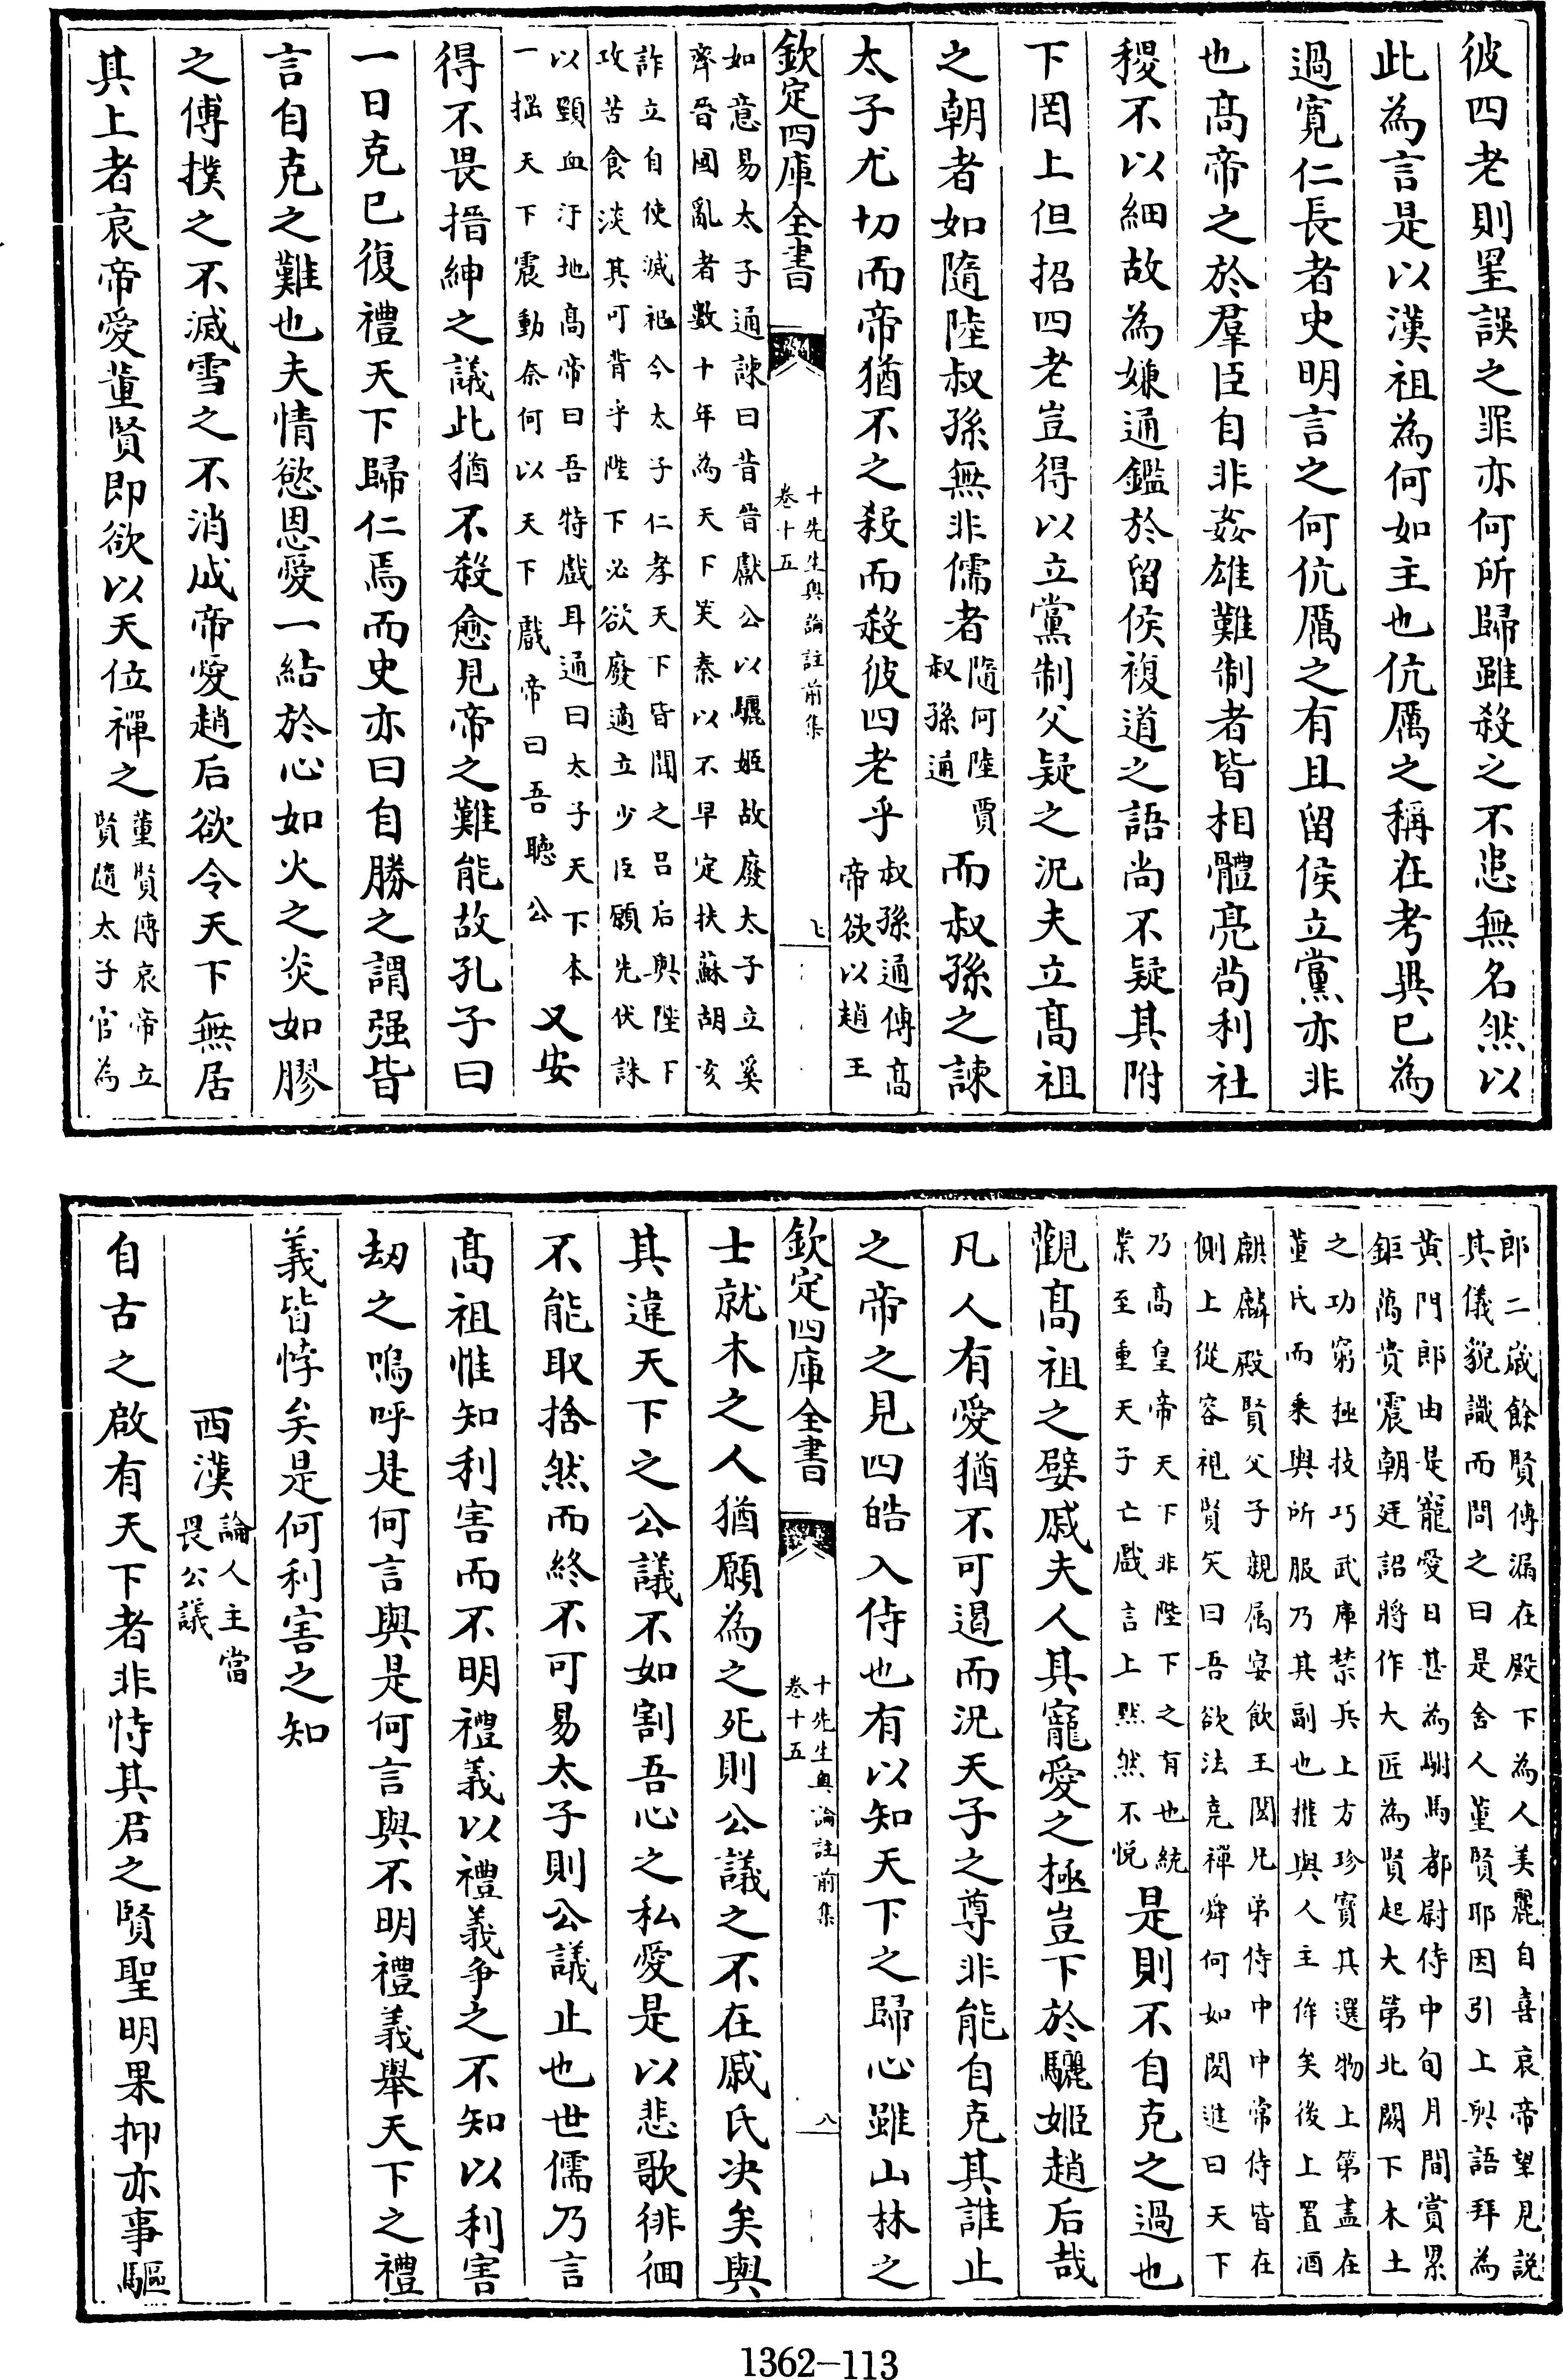 彼四老則罣誤之罪亦何所歸雖殺之不患無名然以
此為言是以漢祖為何如主也伉厲之稱在考異已為
過寛仁長者史明言之何伉厲之有且留侯立黨亦非
也髙帝之於羣臣自非姦雄難制者皆相體亮尚利社
稷不以細故為嫌通鑑於留侯複道之語尚不疑其附
下罔上但招四老豈得以立黨制父疑之況夫立髙祖
之朝者如隨陸叔孫無非儒者隨何陸賈叔孫通而叔孫之諫
太子尤切而帝猶不之殺而殺彼四老乎叔孫通傅髙帝欲以趙王
欽定四庫全書 十先生奧論註前集 卷十五 七
如意易太子通諫曰昔晉獻公以驪姬故廢太子立奚
齊晉國亂者數十年為天下笑秦以不早定扶蘇胡亥
詐立自使滅祀今太子仁孝天下皆聞之吕后與陛下
攻苦食淡其可背乎陛下必欲廢適立少臣願先伏誅
以頸血汙地髙帝曰吾特戲耳通曰太子天下本
一揺天下震動奈何以天下戲帝曰吾聽公又安
得不畏搢紳之議此猶不殺愈見帝之難能故孔子曰
一日克已復禮天下歸仁焉而史亦曰自勝之謂强皆
言自克之難也夫情慾恩愛一紿於心如火之炎如膠
之傅撲之不滅雪之不消成帝愛趙后欲令天下無居
其上者哀帝愛董賢即欲以天位禪之董賢傳哀帝立賢隨太子官為
郎二歳餘賢傅漏在殿下為人美麗自喜哀帝望見説
其儀貌識而問之曰是舍人董賢耶因引上與語拜為
黄門郎由是寵愛日甚為駙馬都尉侍中旬月間賞累
鉅萬貴震朝廷詔將作大匠為賢起大第北闕下木土
之功窮極技巧武庫禁兵上方珍寳其選物上第盡在
董氏而乗輿所服乃其副也推與人主侔矣後上置酒
麒麟殿賢父子親属宴飲王閎兄弟侍中中常侍皆在
側上從容視賢笑曰吾欲法堯禪舜何如閎進曰天下
乃髙皇帝天下非陛下之有也統
業至重天子亡戲言上黙然不悦是則不自克之過也
觀髙祖之嬖戚夫人其寵愛之極豈下於驪姬趙后哉
凡人有愛猶不可遏而況天子之尊非能自克其誰止
之帝之見四皓入侍也有以知天下之歸心雖山林之
欽定四庫全書 十先生奧論註前集 卷十五 八
士就木之人猶願為之死則公議之不在戚氏決矣與
其違天下之公議不如割吾心之私愛是以悲歌徘徊
不能取捨然而終不可易太子則公議止也世儒乃言
髙祖惟知利害而不明禮義以禮義争之不知以利害
刼之嗚呼是何言與是何言與不明禮義舉天下之禮
義皆悖矣是何利害之知
西漢論人主當畏公議
自古之啟有天下者非恃其君之賢聖明果抑亦事驅
1362-113